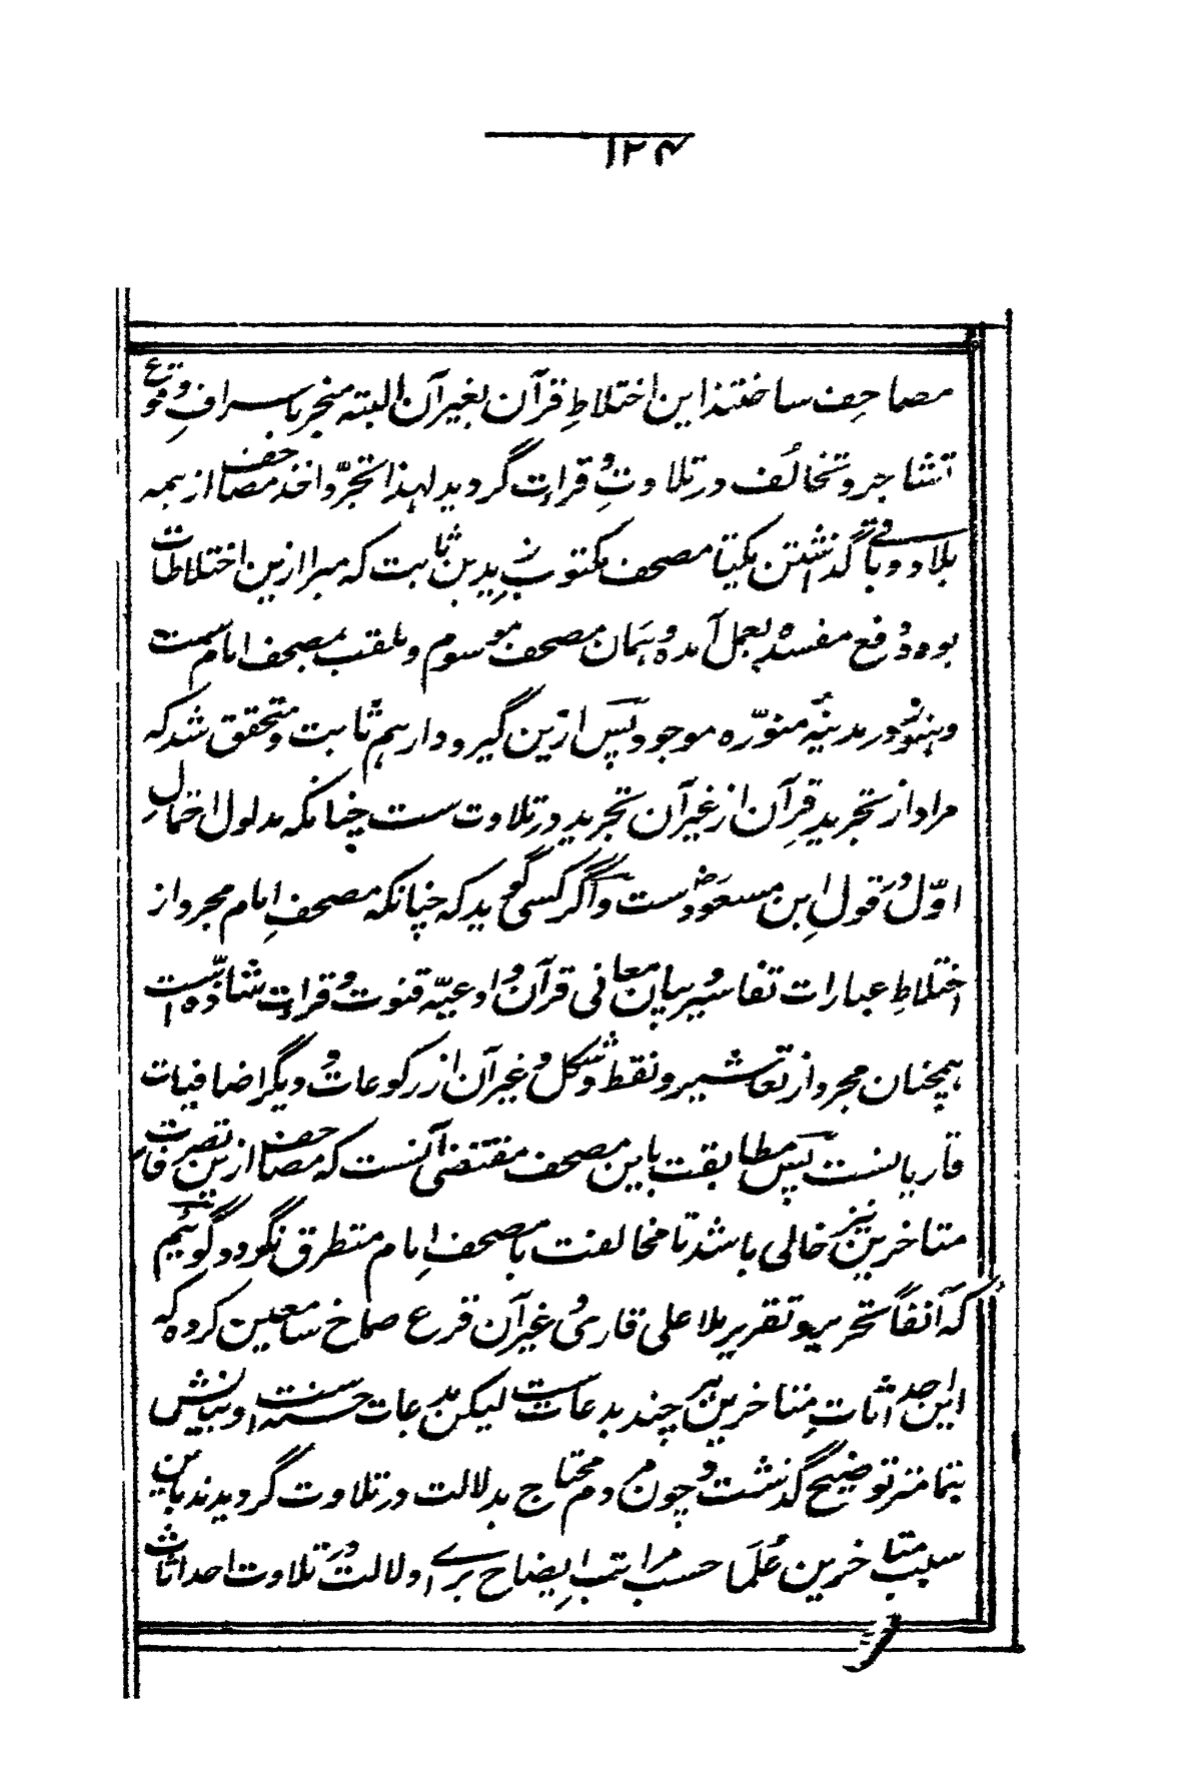 ۱۲۴
مصاحف ساختند این اختلاطِ قرآن بغیر آن البته منجر باسرافِ و وقوع
تشاجر و تخالُف در تلاوتِ و قرات گردید لهذا تجرّد اخذ مصاحف از همه
بلاد و باقی گذاشتن یکتا مصحف مکتوب بدین ثابت که مبرا ازین اختلاطات
بوده و دفع مفسده بعمل آمده و همان مصحف موسوم و ملقب بمصحف امام ست
و هنوز در مدینهٔ منوّره موجود پس ازین گیر و دار هم ثابت و متحقق شد که
مراد از تجرید قرآن از غیر آن تجرید در تلاوت ست چنانکه مدلول احتمالِ
اوّل و قولِ ابن مسعودؓ ست و اگر کسی گوید که چنانکه مصحفِ امام مجرد از
اختلاطِ عبارات تفاسیر و بیان معانی قرآن و ادعیّه قنوت و قرات شاذّه است
همچنان مجرد از تعاشیر و نقط و شکل و غیر آن از رکوعات و دیگر اضافیات
قاریانست پس مطابقت باین مصحف مقتضی آنست که مصاحف ازین تصرفات
متاخرین نیز خالی باشد تا مخالفت با مصحفِ امام متطرق نگردد گوئیم
که آنفاً تحریر و تقریر ملا علی قاری و غیر آن قرع صماخ سامعین کرده که
این احداثاتِ متاخرین هر چند بدعات ست لیکن بدعات حسنه است و بیانش
بتمامتر توضیح گذشت و چون مردم محتاج بدلالت در تلاوت گردیدند باین
سبب متاخرین عُلَما حسب مراتب ایضاح برای دلالت در تلاوت احداثات